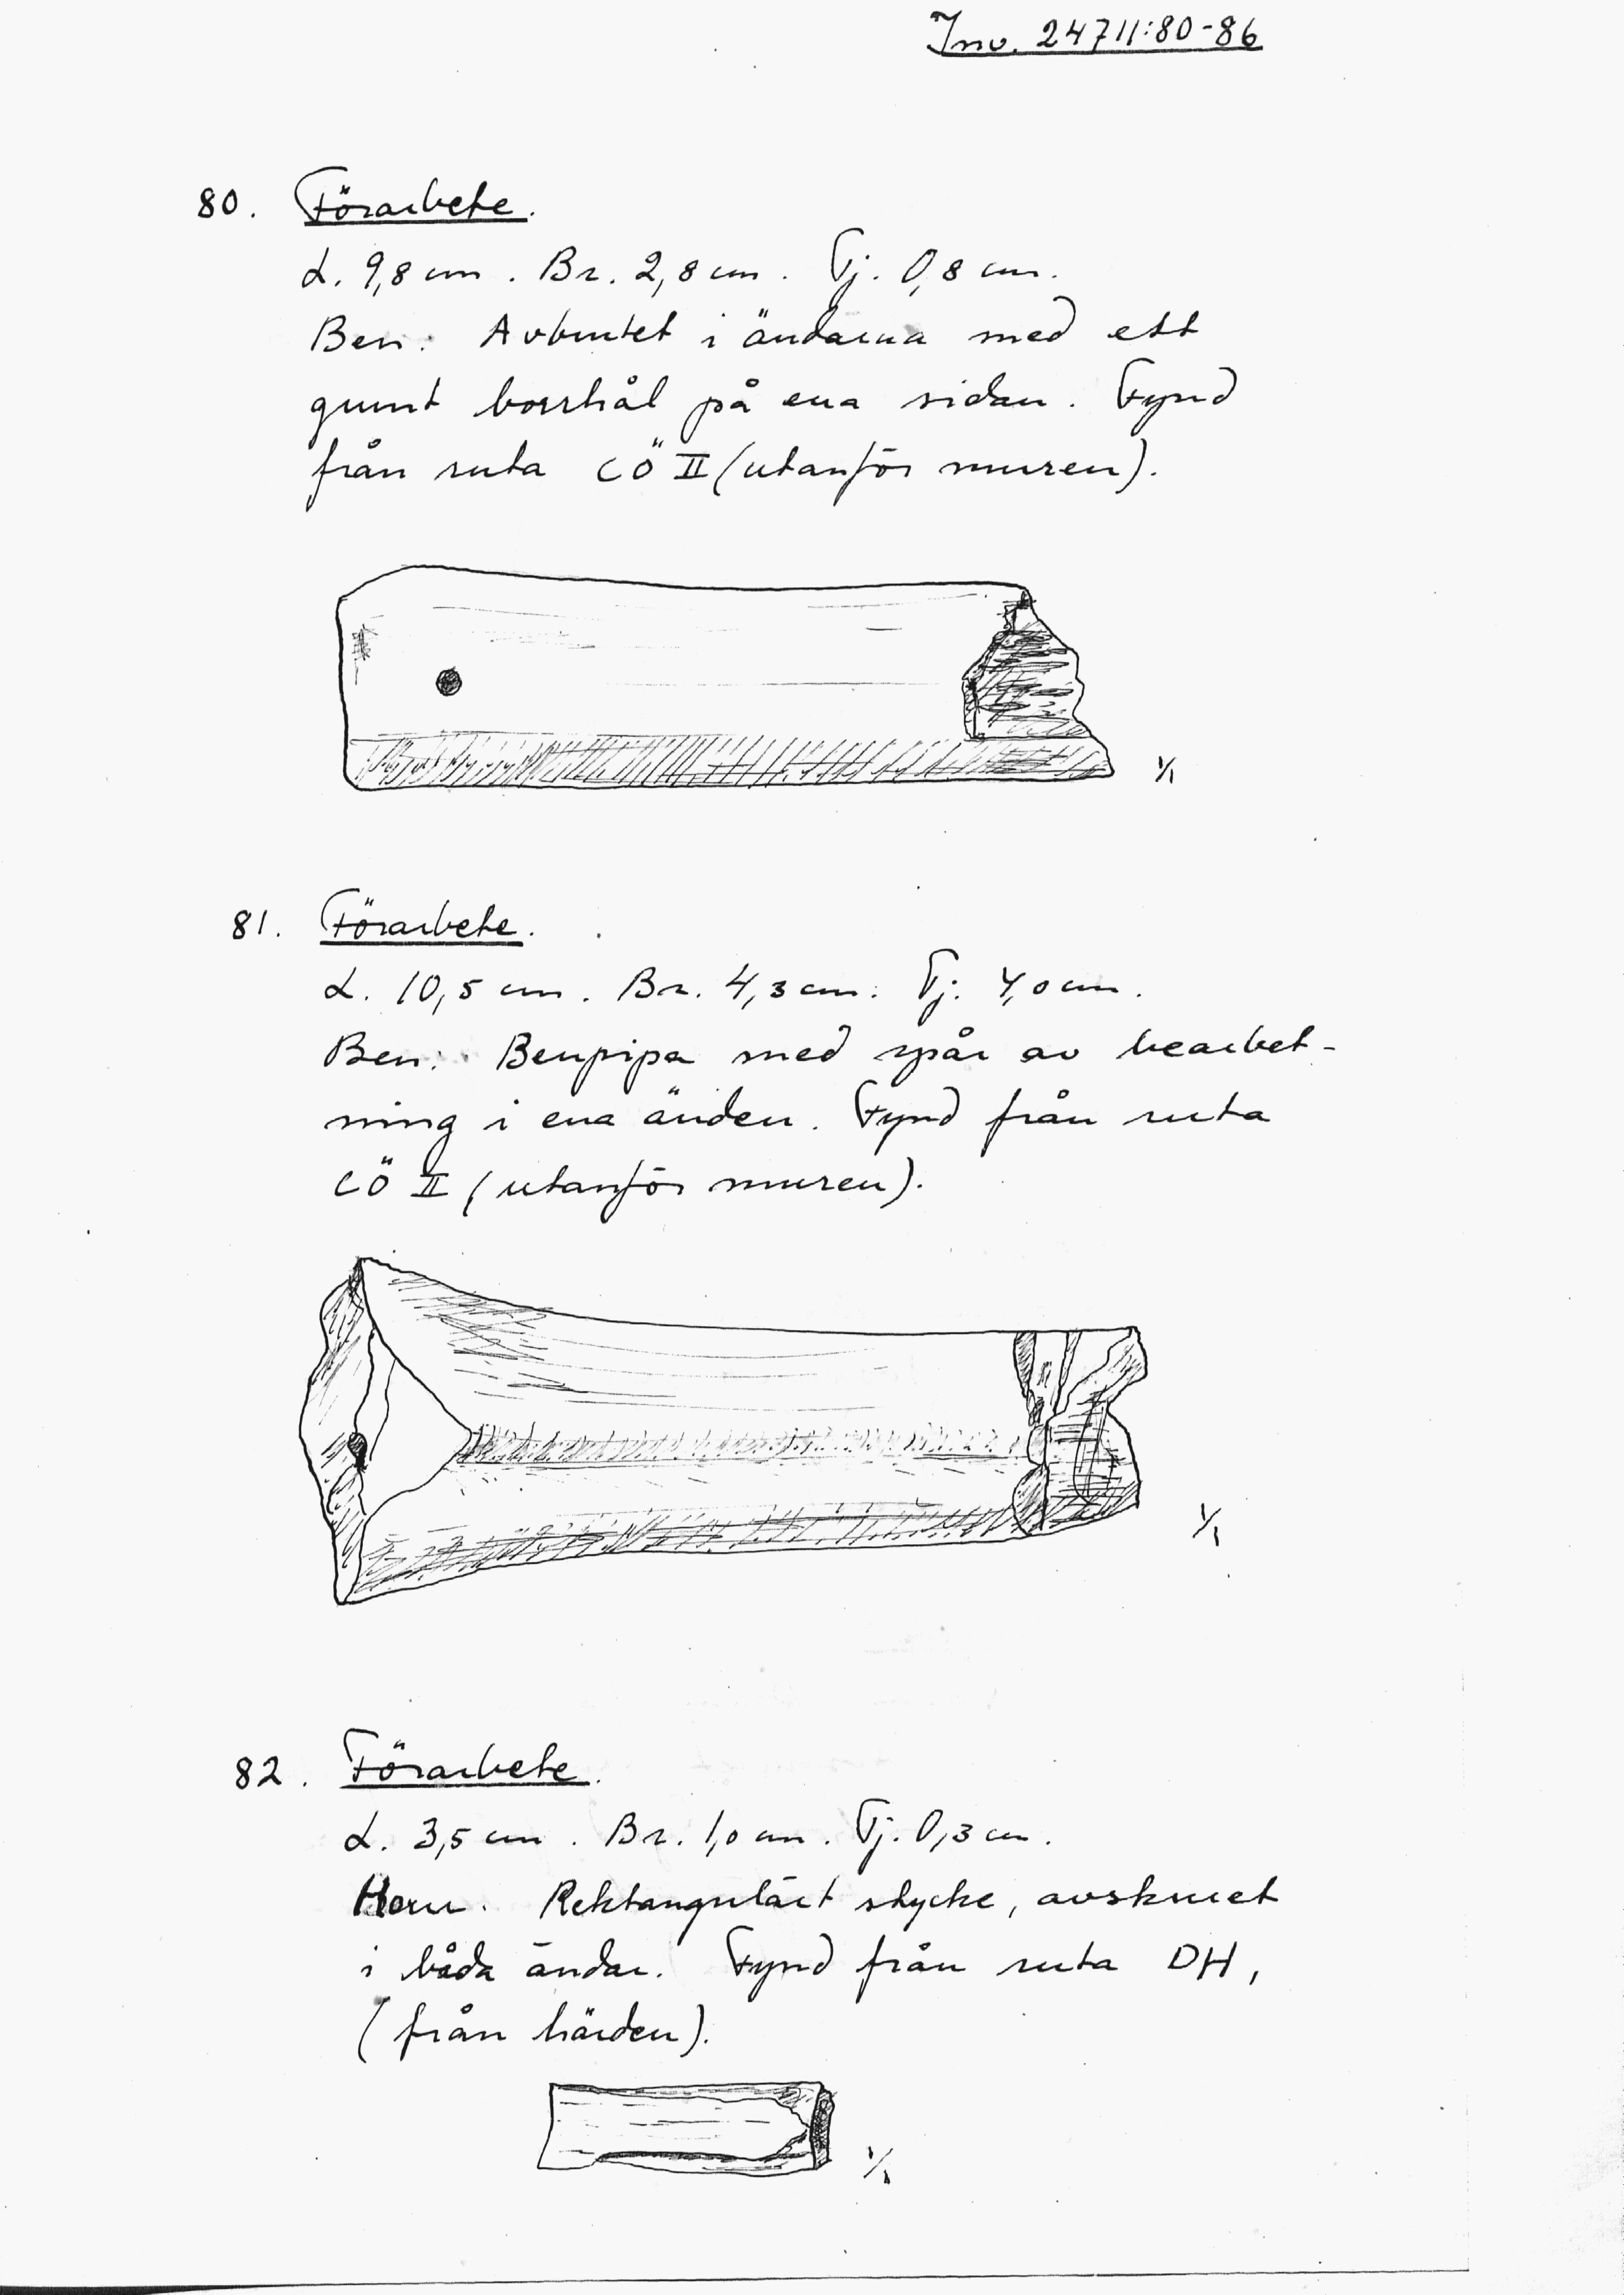 Inv. 24711:80-86
80. Förarbete.
L. 9,8 cm. Br. 2,8 cm. Tj. 0,8 cm.
Ben. Avbrutet i ändarna med ett
grunt borrhål på ena sidan. Fynd
från ruta CÖ II (utanför muren).
1/1
81. Förarbete.
L. 10,5 cm. Br. 4,3 cm. Tj. 4,0 cm.
Ben. Benpipa med spår av bearbet-
ning i ena änden. Fynd från ruta
CÖ II (utanför muren).
1/1
82. Förarbete.
L. 3,5 cm. Br. 1,0 cm. Tj. 0,3 cm.
Horn. Rektangulärt stycke, avskuret
i båda ändar. Fynd från ruta DH,
(från härden).
1/1